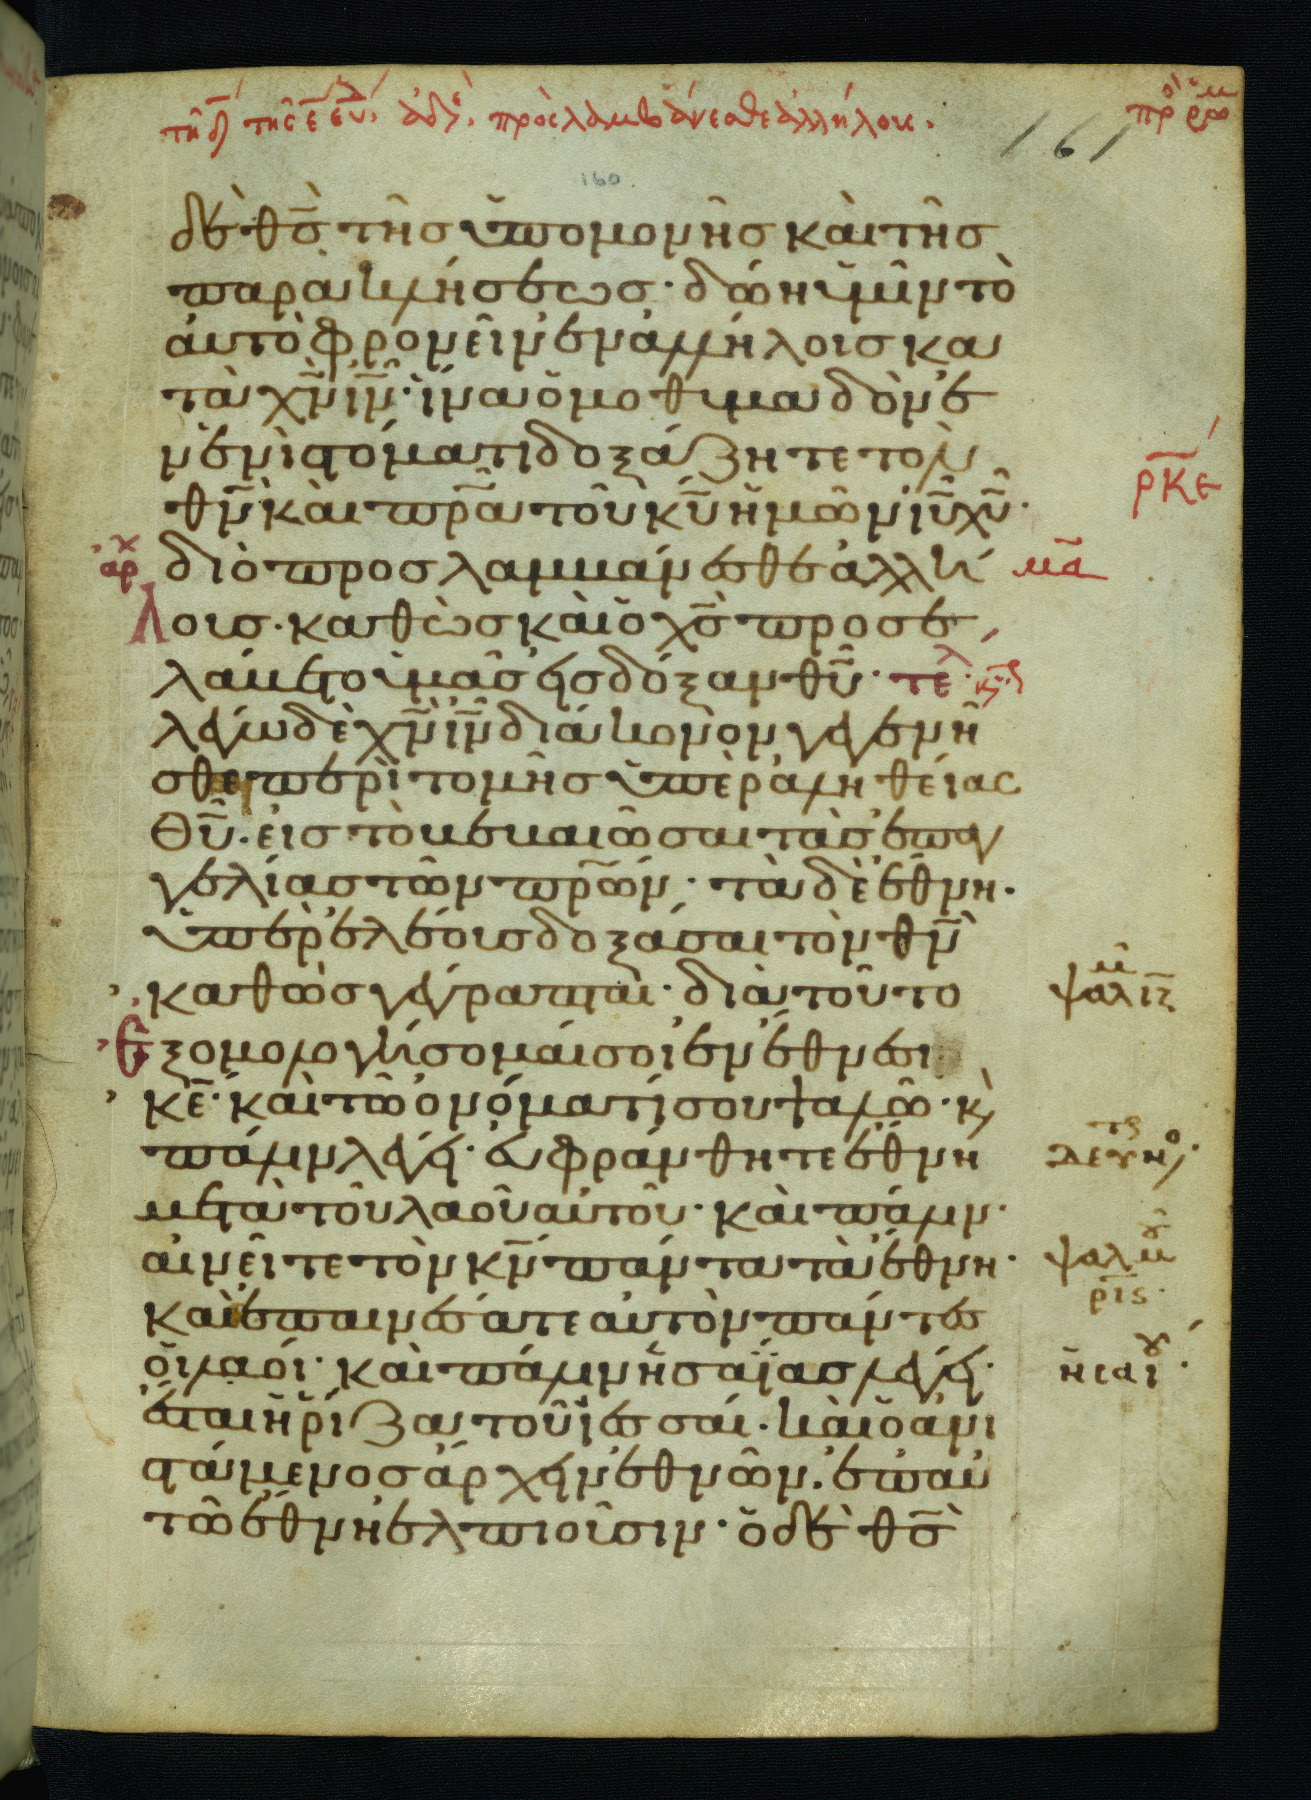 τῆ δ τῆς ε ἑβδ. ἀδελ. προσλαμβάνεσθε ἀλλήλους.
πρ ρω
161
160
δὲ θς̄ τῆς ὑπομονῆς καὶ τῆς
παρακλήσεως· δώη ὑμῖν τὸ
αὐτὸ φρονεῖν ἐν ἀλλήλοις κα
τὰ χν̄ ιν̄· ἵνα ὁμοθυμαδὸν ἐ
ν ἑνὶ στόματι δοξάζητε τὸν
θν̄ καὶ πρ̄α τοῦ κῡ ἡμῶν ιῡ χῡ·
ρκε
ἀρχ διὸ προσλαμβάνεσθε ἀλλή μα
λοις· καθὼς καὶ ὁ χς̄ προσε
λάβετο ὑμᾶς εἰς δόξαν θῡ· τελ
λέγω δὲ χν̄ ιν̄ διάκονον γεγενῆ
σθαι περιτομῆς ὑπὲρ ἀληθείας
θῡ· εἰς τὸ βεβαιῶσαι τὰς ἐπαγ
γελίας τῶν πρ̄ων· τὰ δὲ ἔθνη·
ὑπὲρ ἐλέους δοξάσαι τὸν θν̄
καθὼς γέγραπται· διὰ τοῦτο
ψαλμ ιζ
ἐξομολογήσομαί σοι ἐν ἔθνεσι
κε̄· καὶ τῷ ὀνόματί σου ψαλῶ· κ
πάλιν λέγει· εὐφράνθητε ἔθνη
λευιτ
μετὰ τοῦ λαοῦ αὐτοῦ· καὶ πάλιν·
αἰνεῖτε τὸν κν̄ πάντα τὰ ἔθνη·
ψαλμ
ρις·
καὶ ἐπαινέσατε αὐτὸν πάντες
οἱ λαοί· καὶ πάλιν ἡσαΐας λέγει·
ἡσαι
ἔσται ἡ ῥίζα τοῦ ἰεσσαί· καὶ ὁ ἀνι
στάμενος ἄρχειν ἐθνῶν· ἐπ αὐ
τῷ ἔθνη ἐλπιοῦσιν· ὁ δὲ θς̄